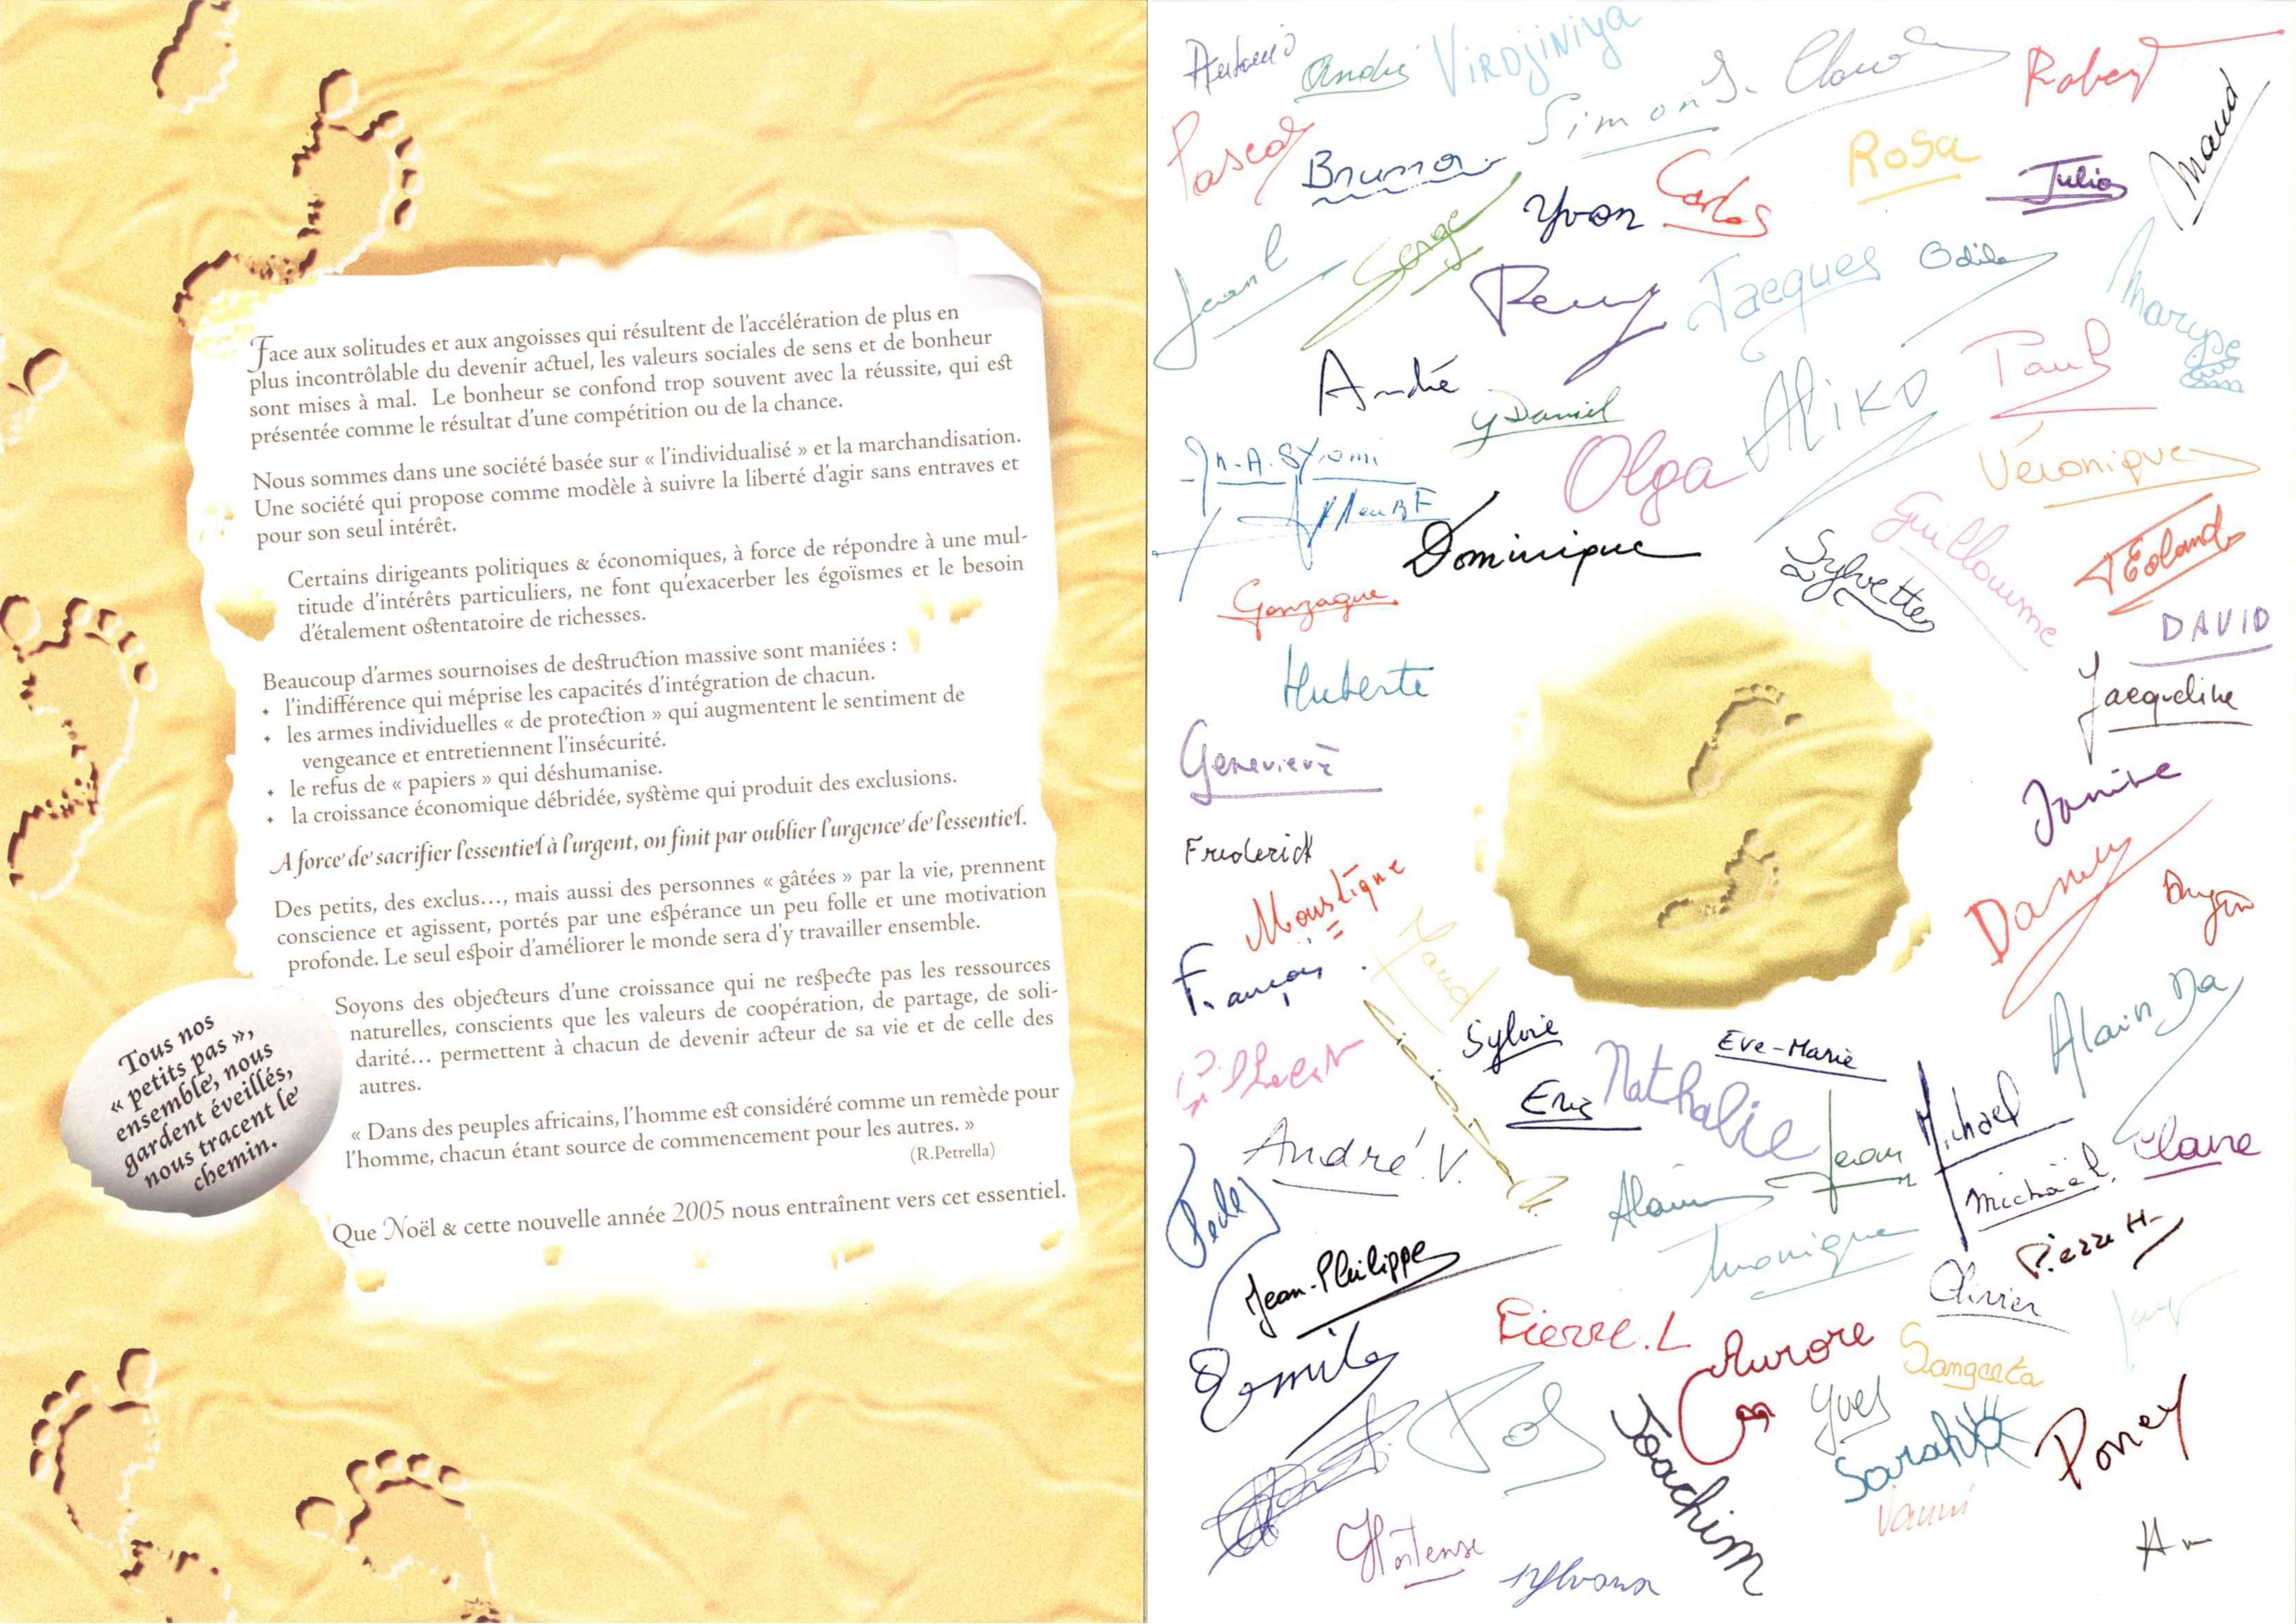 Face aux solitudes et aux angoisses qui résultent de l'accélération de plus en
plus incontrôlable du devenir actuel, les valeurs sociales de sens et de bonheur
sont mises à mal. Le bonheur se confond trop souvent avec la réussite, qui est
présentée comme le résultat d'une compétition ou de la chance.
Nous sommes dans une société basée sur « l'individualisé » et la marchandisation.
Une société qui propose comme modèle à suivre la liberté d'agir sans entraves et
pour son seul intérêt.
Certains dirigeants politiques & économiques, à force de répondre à une mul-
titude d'intérêts particuliers, ne font qu'exacerber les égoïsmes et le besoin
d'étalement ostentatoire de richesses.
Beaucoup d'armes sournoises de destruction massive sont maniées :
+ l'indifférence qui méprise les capacités d'intégration de chacun.
+ les armes individuelles « de protection » qui augmentent le sentiment de
vengeance et entretiennent l'insécurité.
+ le refus de « papiers » qui déshumanise.
+ la croissance économique débridée, système qui produit des exclusions.
A force de sacrifier l'essentiel à l'urgent, on finit par oublier l'urgence de l'essentiel.
Des petits, des exclus..., mais aussi des personnes « gâtées » par la vie, prennent
conscience et agissent, portés par une espérance un peu folle et une motivation
profonde. Le seul espoir d'améliorer le monde sera d'y travailler ensemble.
Soyons des objecteurs d'une croissance qui ne respecte pas les ressources
naturelles, conscients que les valeurs de coopération, de partage, de soli-
darité... permettent à chacun de devenir acteur de sa vie et de celle des
autres.
« Dans des peuples africains, l'homme est considéré comme un remède pour
l'homme, chacun étant source de commencement pour les autres. »
(R.Petrella)
Que Noël & cette nouvelle année 2005 nous entraînent vers cet essentiel.
Tous nos
« petits pas »,
ensemble, nous
gardent éveillés,
nous tracent le
chemin.
Antonio
André
VIRDJiNiya
Simon
Robert
Pascal
Bruno
Yvon
Carlos
Rosa
Julia
Maud
Serge
Remy
Jacques
Odile
Maryse
André
Daniel
Olga
Aliko
Paul
Véronique
Dominique
Sylvette
Guillaume
DAVID
Gonzague
Huberte
Jacqueline
Geneviève
Janine
Frederick
Moustique
Dany
François
Maud
Sylvie
Eve-Marie
Alain Da
Eric
Nathalie
Michael
Claire
André. V.
Jean
Michaël
Alain
Monique
Pierre H
Jean-Philippe
Olivier
Pierre. L
Aurore
Sangeeta
Emile
Yves
Sarah
Poney
Joachim
Vanni
Hortense
Sylvana